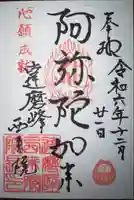 奉拝
令和六年十二月
廿日
阿弥陀如来
心願成就
達磨峰
西来院